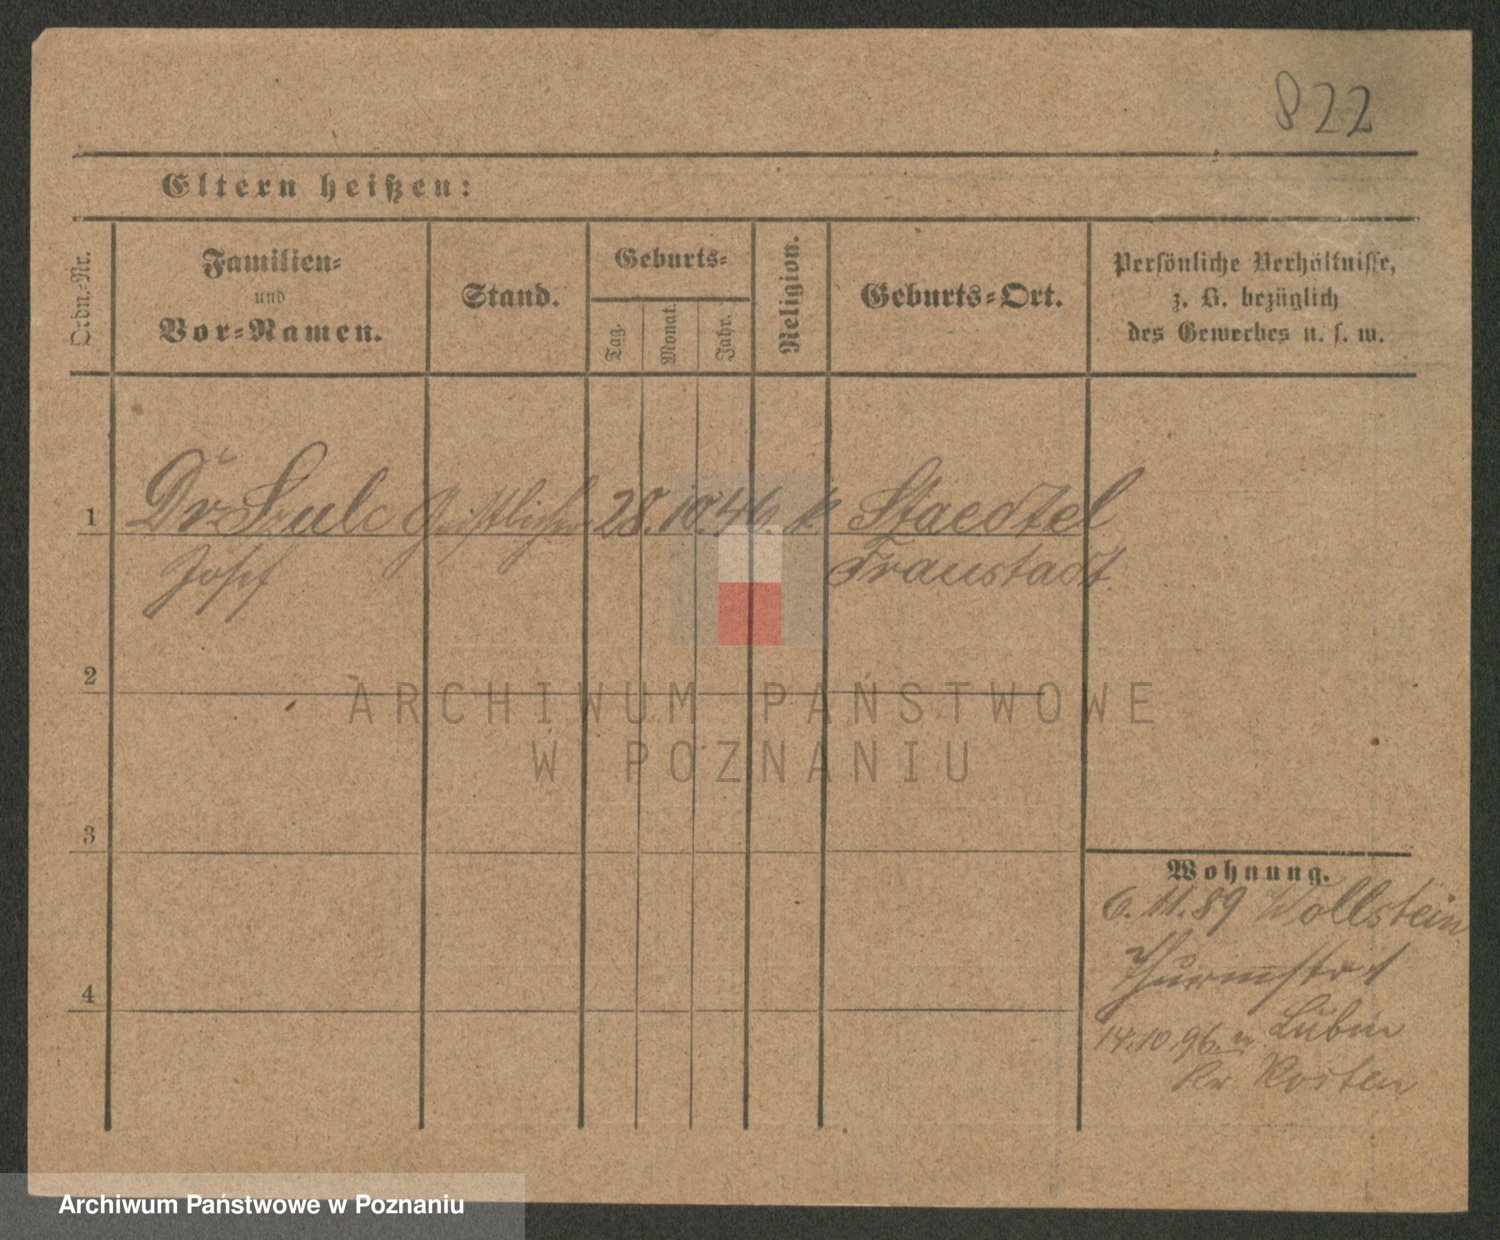 822
Eltern heißen:
Ordn.-Nr.
Familien-
und
Vor-Namen.
Stand.
Geburts-
Tag.
Monat.
Jahr.
Religion.
Geburts-Ort.
Persönliche Verhältnisse,
z. B. bezüglich
des Gewerbes u. s. w.
1 Dr Szulc Geistlicher 28. 10. 46. k Staedtel
Josef Fraustadt
2
ARCHIWUM PAŃSTWOWE
W POZNANIU
3
Wohnung.
6. 11. 89 Wollstein
Thurmstr 1
4
14.10.96. n. Lubin
Kr Kosten
Archiwum Państwowe w Poznaniu